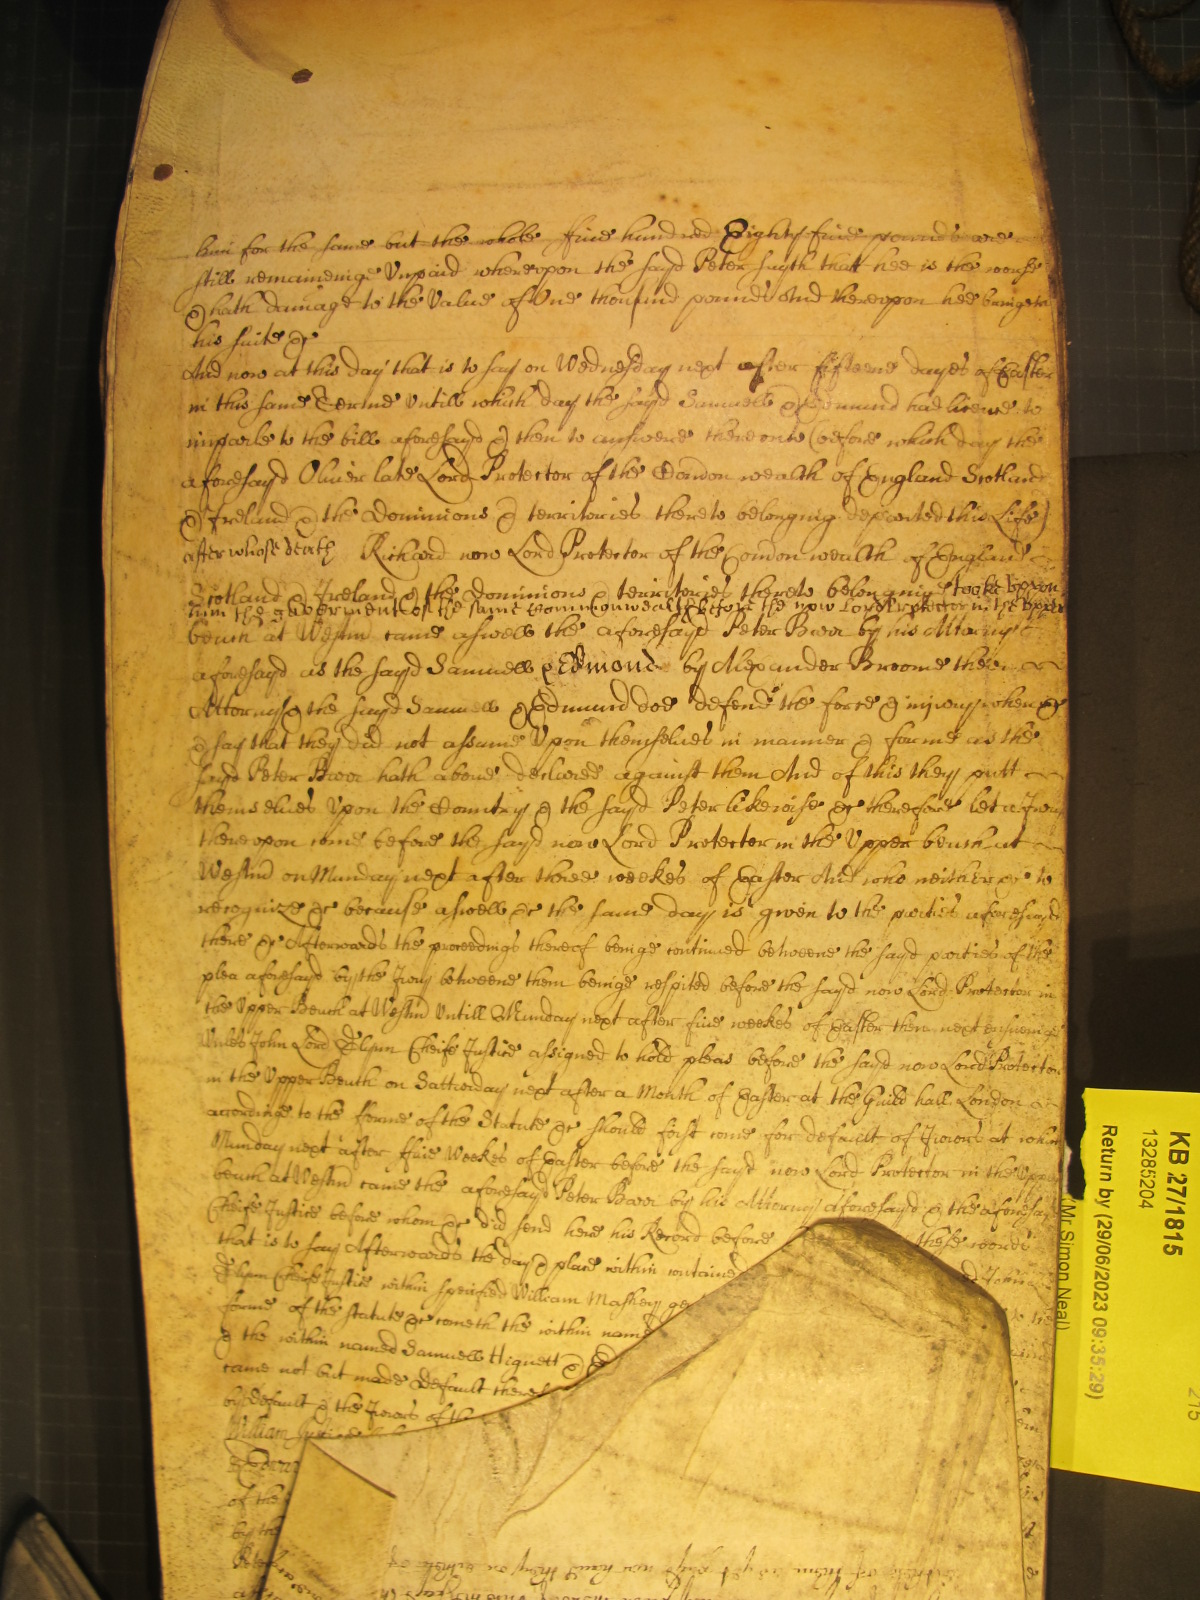 him for the same but the whole five hundred Eighty five pounds are
still remaineinge Unpaid whereupon the sayd Peter sayth that hee is the worse
& hath damage to the Value of One thousand pounds And thereupon hee bringeth
his suite &c
And now at this day that is to say on Wednesday next after fifteene dayes of Easter
in this same Terme Untill which day the sayd Samuell & Edmund had licence to
imparle to the bill aforesayd & then to answere thereonto (before which day the
aforesayd Oliver late Lord Protector of the Common wealth of England Scotland
& Ireland & the Dominions & territories thereto belonging departed this Life)
after whose death Richard now Lord Protector of the Common wealth of England
Scotland & Ireland & the dominions & territories thereto belonginge tooke upon
him the government of the same Commonwealth before the now Lord Protector in the upper
bench at Westm came aswell the aforesayd Peter Barr by his Attorny
aforesayd as the sayd Samuell & Edmond by Alexander Broome their
Attorny & the sayd Samuell & Edmund doe defend the force & iniury when &c
& say that they did not assume Upon themselves in manner & forme as the
sayd Peter Barr hath above declared against them And of this they putt
themselves Upon the Countrey & the sayd Peter likewise &c therefore let a Jury
thereupon come before the sayd now Lord Protector in the Upper bench at
Westm on Munday next after three weekes of Easter And who neither &c to
recognize &c because aswell &c the same day is given to the parties aforesayd
there &c Afterwards the proceedings thereof beinge continued betweene the sayd parties of the
plea aforesayd by the Jury betweene them beinge respited before the sayd now Lord Protector in
the Upper Bench at Westm Untill Munday next after five weekes of Easter then next ensueinge
Unles John Lord Glynn Cheife Justice assigned to hold pleas before the sayd now Lord Protector
in the Upper Bench on Satturday next after a Month of Easter at the Guild hall London
accordinge to the forme of the Statute &c should first come for default of Jurors at which
Munday next after five Weekes of Easter before the sayd now Lord Protector in the Upper
bench at Westm came the aforesayd Peter Barr by his Attorny aforesayd & the aforesayd
Cheife Justice before whom &c did send here his Record before these words
that is to say Afterwards the day & place within contained John
Glynn Cheife Justice within specified William Maskey
forme of the statute &c cometh the within named
& the within named Samuell Hignett &
came not but made Default
by default & the Jurors of the
William
of the
by the
Peter
KB 27/1815
13285204
Return by (29/06/2023 09:35:29)
(Mr Simon Neal)